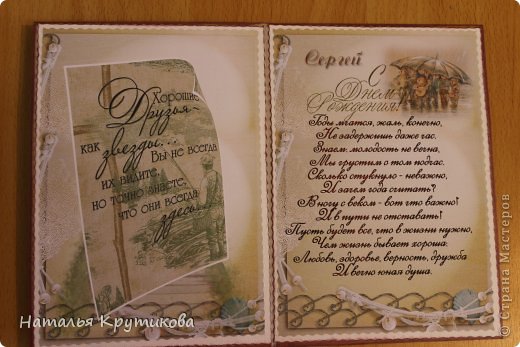 Хорошие
Друзья -
как звезды...
Вы не всегда
их видите,
но точно знаете,
что они всегда
здесь...
Сергей
С
Днем
Рождения!
Годы мчатся, жаль, конечно,
Не задержишь даже час,
Знаем: молодость не вечна,
Мы грустим о том подчас.
Сколько стукнуло - неважно,
И зачем года считать?
В ногу с веком - вот что важно!
И в пути не отставать!
Пусть будет все, что в жизни нужно,
Чем жизнь бывает хороша:
Любовь, здоровье, верность, дружба
И вечно юная душа.
Наталья Крутикова
© Страна Мастеров